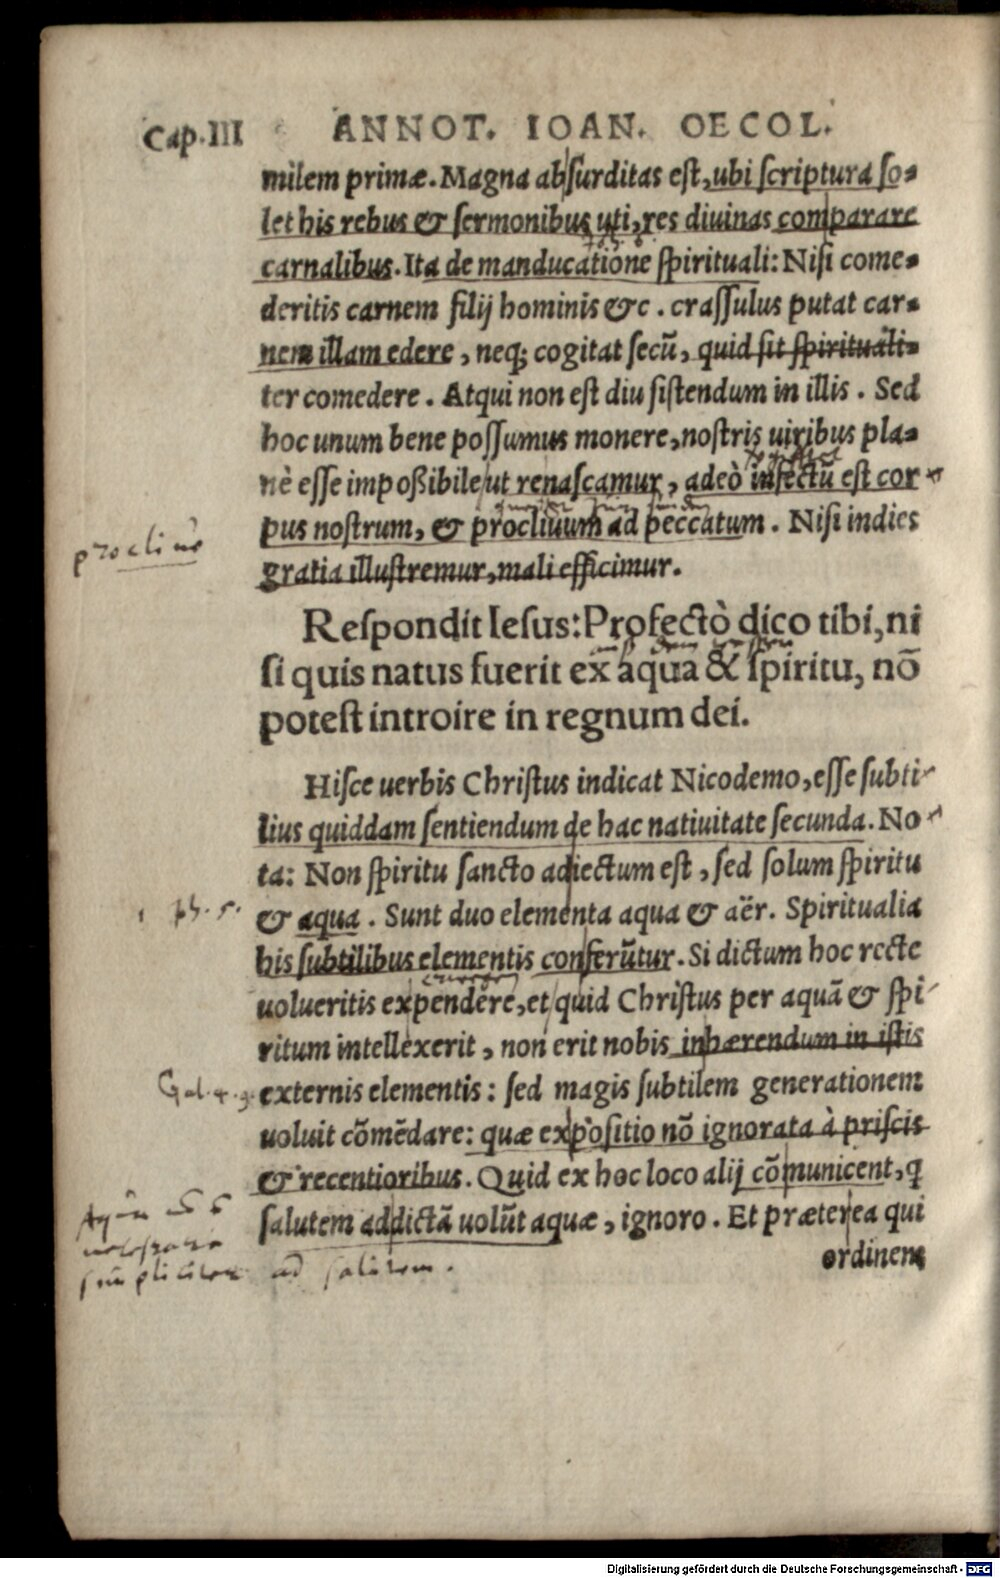 Cap.III ANNOT. IOAN. OECOL.
milem primæ. Magna absurditas est, ubi scriptura so-
let his rebus & sermonibus uti, res diuinas comparare
carnalibus. Ita de manducatione spirituali: Nisi come-
deritis carnem filij hominis &c. crassulus putat car-
nem illam edere, neq; cogitat secũ, quid sit spirituali-
ter comedere. Atqui non est diu sistendum in illis. Sed
hoc unum bene possumus monere, nostris uiribus pla-
nè esse impoßibile ut renascamur, adeò infectũ est cor
pus nostrum, & procliuum ad peccatum. Nisi indies
procliuũ
gratia illustremur, mali efficimur.
Respondit Iesus: Profectò dico tibi, ni
si quis natus fuerit ex aqua & spiritu, nõ
potest introire in regnum dei.
Hisce uerbis Christus indicat Nicodemo, esse subti-
lius quiddam sentiendum de hac natiuitate secunda. No
ta: Non spiritu sancto adiectum est, sed solum spiritu
& aqua. Sunt duo elementa aqua & aër. Spiritualia
his subtilibus elementis conferũtur. Si dictum hoc recte
uolueritis expendere, et quid Christus per aquã & spi-
ritum intellexerit, non erit nobis inhærendum in istis
Gal. 4. 9.
externis elementis: sed magis subtilem generationem
uoluit cõmẽdare: quæ expositio nõ ignorata à priscis
& recentioribus. Quid ex hoc loco alij cõmunicent, q
salutem addictã uolũt aquæ, ignoro. Et præterea qui
ordinem
simpliciter ad salutem.